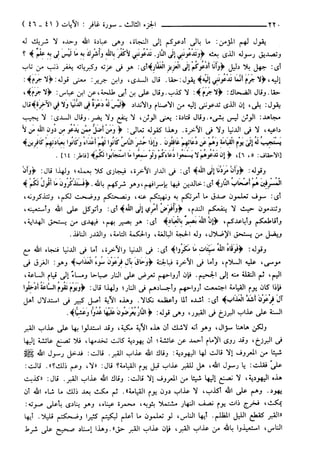 ٢٢٠ الجزء الثالث ـ سورة غافر : الآيات (٤١ ـ ٤٦)
يقول لهم المؤمن: ما بالي أدعوكم إلى النجاة، وهي عبادة الله وحده لا شريك له
وتصديق رسوله الذي بعثه ﴿وَتَدْعُونَنِي إِلَى النَّارِ. تَدْعُونَنِي لِأَكْفُرَ بِاللَّهِ وَأُشْرِكَ بِهِ مَا لَيْسَ لِي بِهِ عِلْمٌ﴾ ؟
أي: جهل بلا دليل ﴿وَأَنَا أَدْعُوكُمْ إِلَى الْعَزِيزِ الْغَفَّارِ﴾ أي: هو في عزته وكبريائه يغفر ذنب من تاب
إليه، ﴿لَا جَرَمَ أَنَّمَا تَدْعُونَنِي إِلَيْهِ﴾ يقول: حقا. قال السدي، وابن جرير: معنى قوله: ﴿لَا جَرَمَ﴾:
حقا. وقال الضحاك: ﴿لَا جَرَمَ﴾: لا كذب. وقال علي بن أبي طلحة، عن ابن عباس: ﴿لَا جَرَمَ﴾،
يقول: بلى، إن الذي تدعونني إليه من الأصنام والأنداد ﴿لَيْسَ لَهُ دَعْوَةٌ فِي الدُّنْيَا وَلَا فِي الْآخِرَةِ﴾ قال
مجاهد: الوثن ليس بشيء. وقال قتادة: يعني الوثن، لا ينفع ولا يضر. وقال السدي: لا يجيب
داعيه، لا في الدنيا ولا في الآخرة. وهذا كقوله تعالى: ﴿وَمَنْ أَضَلُّ مِمَّن يَدْعُو مِن دُونِ اللَّهِ مَن لَّا
يَسْتَجِيبُ لَهُ إِلَى يَوْمِ الْقِيَامَةِ وَهُمْ عَن دُعَائِهِمْ غَافِلُونَ. وَإِذَا حُشِرَ النَّاسُ كَانُوا لَهُمْ أَعْدَاءً وَكَانُوا بِعِبَادَتِهِمْ كَافِرِينَ﴾
[الأحقاف: ٥، ٦]، ﴿إِن تَدْعُوهُمْ لَا يَسْمَعُوا دُعَاءَكُمْ وَلَوْ سَمِعُوا مَا اسْتَجَابُوا لَكُمْ﴾ [فاطر: ١٤].
وقوله: ﴿وَأَنَّ مَرَدَّنَا إِلَى اللَّهِ﴾ أي: في الدار الآخرة، فيجازي كلا بعمله؛ ولهذا قال: ﴿وَأَنَّ
الْمُسْرِفِينَ هُمْ أَصْحَابُ النَّارِ﴾ أي: خالدين فيها بإسرافهم، وهو شركهم بالله. ﴿فَسَتَذْكُرُونَ مَا أَقُولُ لَكُمْ﴾
أي: سوف تعلمون صدق ما أمرتكم به ونهيتكم عنه، ونصحتكم ووضحت لكم، وتتذكرونه،
وتندمون حيث لا ينفعكم الندم، ﴿وَأُفَوِّضُ أَمْرِي إِلَى اللَّهِ﴾ أي: وأتوكل على الله وأستعينه،
وأقاطعكم وأباعدكم، ﴿إِنَّ اللَّهَ بَصِيرٌ بِالْعِبَادِ﴾ أي: هو بصير بهم، فيهدي من يستحق الهداية،
ويضل من يستحق الإضلال، وله الحجة البالغة، والحكمة التامة، والقدر النافذ.
وقوله: ﴿فَوَقَاهُ اللَّهُ سَيِّئَاتِ مَا مَكَرُوا﴾ أي: في الدنيا والآخرة، أما في الدنيا فنجاه الله مع
موسى عليه السلام، وأما في الآخرة فبالجنة ﴿وَحَاقَ بِآلِ فِرْعَوْنَ سُوءُ الْعَذَابِ﴾ وهو: الغرق في
اليم، ثم النقلة منه إلى الجحيم. فإن أرواحهم تعرض على النار صباحا ومساء إلى قيام الساعة،
فإذا كان يوم القيامة اجتمعت أرواحهم وأجسادهم في النار؛ ولهذا قال: ﴿وَيَوْمَ تَقُومُ السَّاعَةُ أَدْخِلُوا
آلَ فِرْعَوْنَ أَشَدَّ الْعَذَابِ﴾ أي: أشده ألما وأعظمه نكالا. وهذه الآية أصل كبير في استدلال أهل
السنة على عذاب البرزخ في القبور، وهي قوله: ﴿النَّارُ يُعْرَضُونَ عَلَيْهَا غُدُوًّا وَعَشِيًّا﴾.
ولكن هاهنا سؤال، وهو أنه لا شك أن هذه الآية مكية، وقد استدلوا بها على عذاب القبر
في البرزخ، وقد روى الإمام أحمد عن عائشة؛ أن يهودية كانت تخدمها، فلا تصنع عائشة إليها
شيئا من المعروف إلا قالت لها اليهودية: وقاك الله عذاب القبر. قالت: فدخل رسول الله ﷺ
علي فقلت: يا رسول الله، هل للقبر عذاب قبل يوم القيامة؟ قال: «لا، وعم ذلك؟». قالت:
هذه اليهودية، لا نصنع إليها شيئا من المعروف إلا قالت: وقاك الله عذاب القبر. قال: «كذبت
يهود. وهم على الله أكذب، لا عذاب دون يوم القيامة». ثم مكث بعد ذلك ما شاء الله أن
يمكث، فخرج ذات يوم نصف النهار مشتملا بثوبه، محمرة عيناه، وهو ينادي بأعلى صوته:
«القبر كقطع الليل المظلم. أيها الناس، لو تعلمون ما أعلم لبكيتم كثيرا وضحكتم قليلا. أيها
الناس، استعيذوا بالله من عذاب القبر، فإن عذاب القبر حق». وهذا إسناد صحيح على شرط